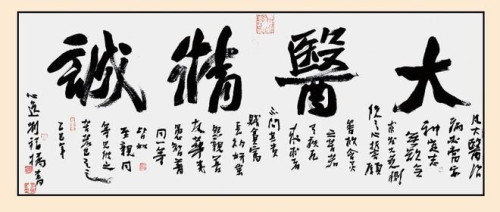 大醫精誠
凡大醫治
病必當安
神定志
無欲無
求先發大慈惻
隱之心誓願
普救含靈
之苦若
有疾厄
來求者
不問其貴
賤貧富
長幼妍蚩
怨親善
友華夷
愚智普
同一等
皆如
至親